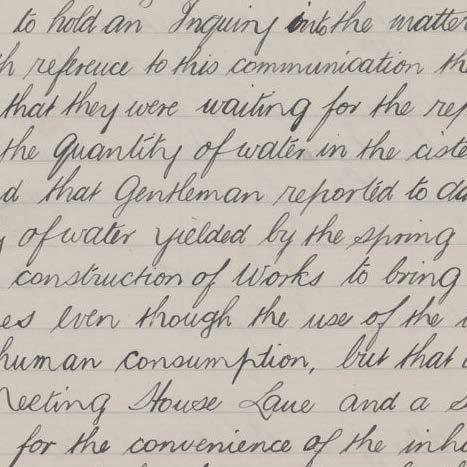 to hold an Inquiry into the matter
reference to this communication
that they were waiting for the
the Quantity of water in the
that Gentleman reported to
of water yielded by the spring
construction of Works to bring
even though the use of the
human consumption, but that
Meeting House Lane and a
for the convenience of the